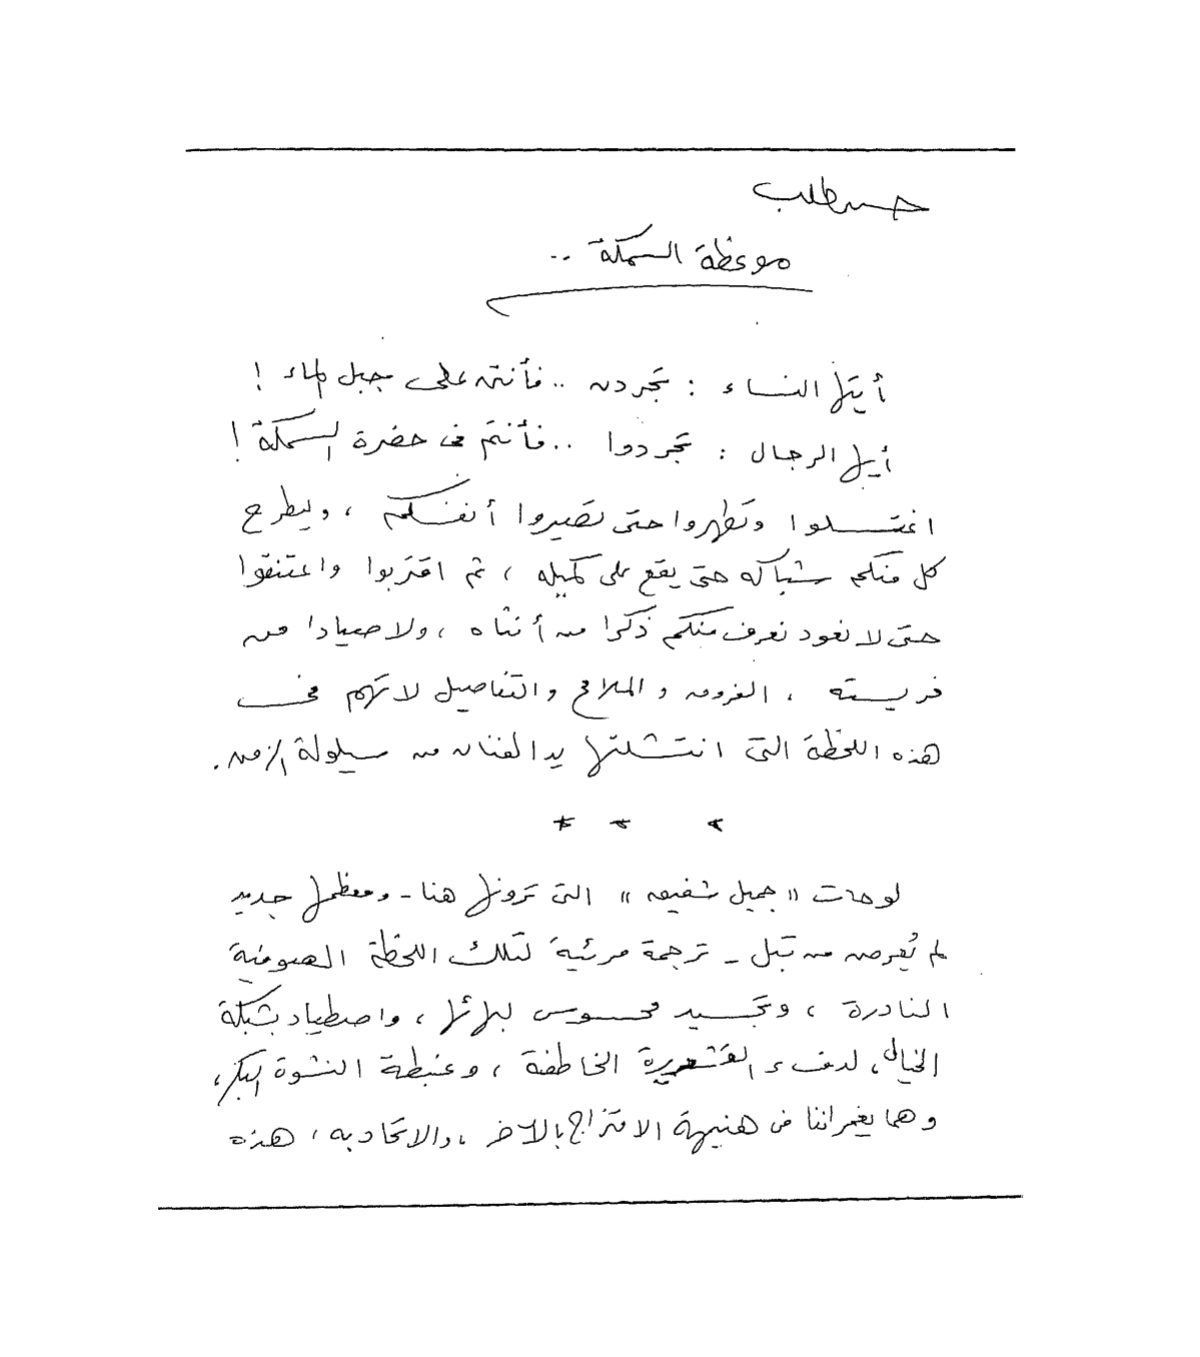 حسن طلب
موعظة السمكة ..
أيتها النساء : تجردن .. فأنتن على جبل الماء !
أيها الرجال : تجردوا .. فأنتم فى حضرة السمكة !
اغتسلوا وتطهروا حتى تصيروا أنفسكم ، وليطرح
كل منكم شباكه حتى يقع على كميله ، ثم اقتربوا واعتنقوا
حتى لا نعود نعرف منكم ذكرا من أنثاه ، ولا صيادا من
فريسته ، الفروق والملامح والتفاصيل لا تهم فى
هذه اللحظة التى انتشلتها يد الفنان من سيلولة الزمن .
* * *
لوحات " جميل شفيق " التى ترونها هنا - ومعظمها جديد
لم يُعرض من قبل - ترجمة مرئية لتلك اللحظة الصوفية
النادرة ، وتجسيد محسوس لبهائها ، واصطياد بشبكة
الخيال ، لدفء القشعريرة الخاطفة ، وغبطة النشوة البكر ،
وهما يغمراننا فى هنيهة الامتزاج بالآخر ، والاتحاد به ، هذه